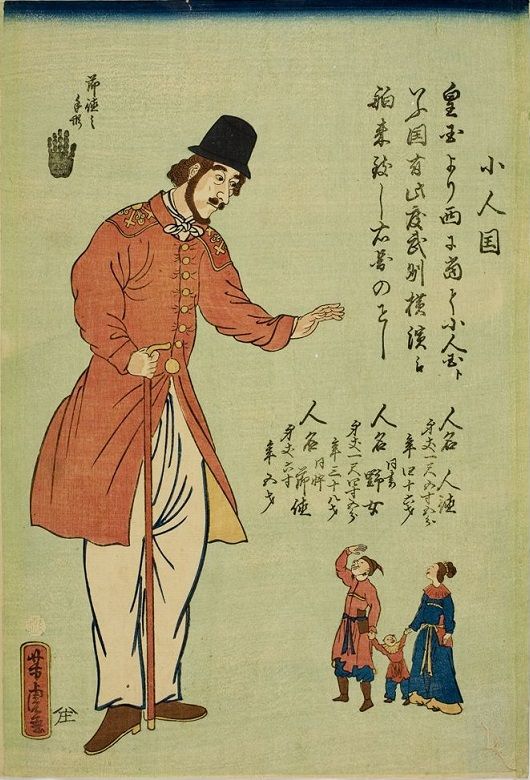 小人国
皇国より西に当り小人国ト
いふ国有此度武州横濱に
舶来致し右図のごとし
人名 人徳
身丈一尺五寸五分
年四十六才
人名 同妻 野女
身丈一尺四寸五分
年三十八才
人名 同忰 節徳
身丈六寸
年五才
節徳之
手形
芳虎画